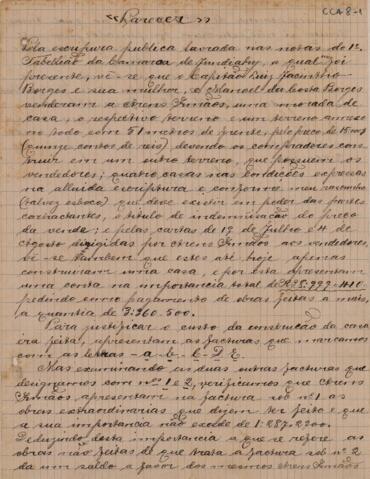 CCA-8-1
"Parecer"
Pela escriptura publica lavrada nas notas do 1º
Tabellião da Comarca de Jundiahy, a qual foi
presente, vê-se que o Capitão Luiz Jacintho
Borges e sua mulher, e Manoel da Costa Borges
venderam a Irmãos, uma morada de
casa, o respectivo terreno e um terreno annexo
no todo com 51 metros de frente, pelo preço de 15:000$
(quinze contos de reis) devendo os compradores cons-
truir em um outro terreno, que possuem os
vendedores; quatro casas nas condições expressas
na alludida escriptura e conforme meu rascunho
(talvez esboço) que deve existir em poder das partes
contractantes, o titulo de indemnisação do preço
da venda; e pelas cartas de 19 de Julho e 4 de
Agosto dirigidas por Irmãos aos vendedores,
vê-se tambem que estes até hoje apenas
construiram uma casa, e por esta apresentam
uma conta na importancia total de Rs 5:999.410.
pedindo como pagamento de obras feitas a mais,
a quantia de 3:360.500.
Para justificar o custo da construcção da casa
já feita, apresentam as facturas que marcamos
com as letras - a - b - C - D E.
Mas examinando as duas outras facturas que
designamos com nos 1 e 2, verificamos que
Irmãos apresentam na factura sob nº 1 as
obras extraordinarias que dizem ter feito e que
a sua importancia não excede de 1:287.2200.
Deduzindo desta importancia a que se refere as
obras não feitas de que trata a factura sob nº 2
dá um saldo a favor dos mesmos Irmãos